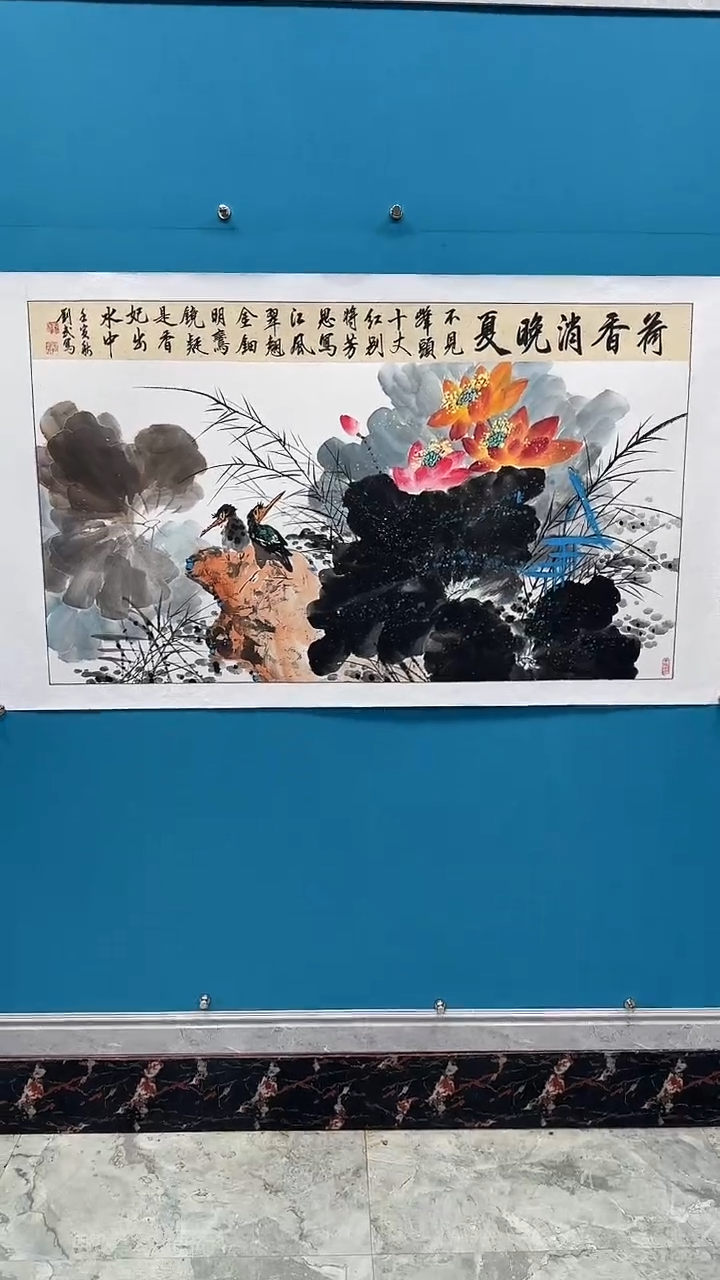 荷香消晚夏
不見
峰頭
十丈
紅别
將芳
思寫
江風
翠翹
金鈿
明鸞
鏡疑
是香
妃出
水中
壬寅秋